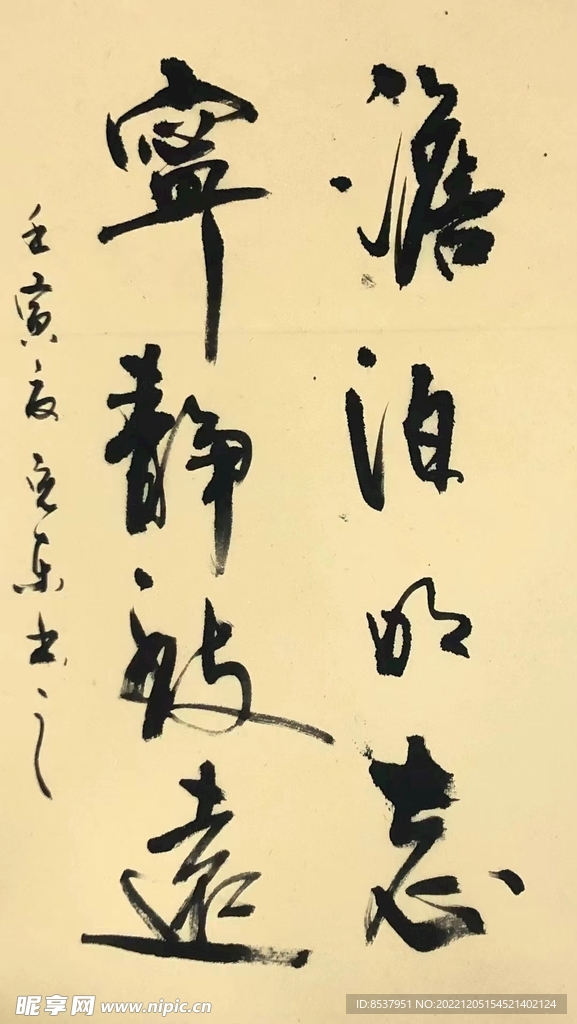 澹泊明志
寧静致遠
壬寅夏克东书之
昵享网 www.nipic.cn
ID:8537951 NO:20221205154521402124